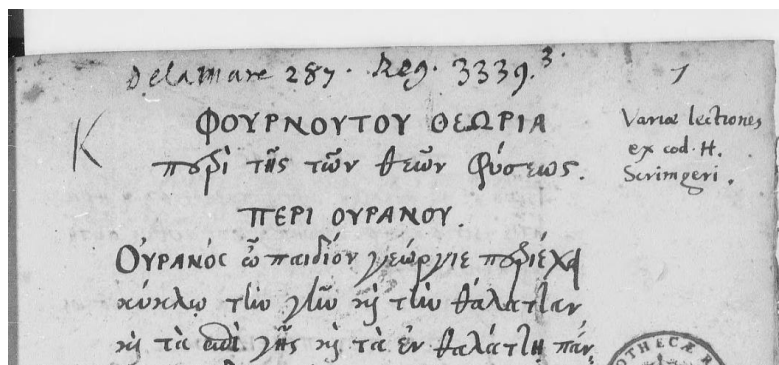 Delamare 287. Reg. 3339.3.
1
K
ΦΟΥΡΝΟΥΤΟΥ ΘΕΩΡΙΑ
περὶ τῆς τῶν θεῶν φύσεως.
Variæ lectiones
ex cod. H.
Scrimgeri.
ΠΕΡΙ ΟΥΡΑΝΟΥ.
Οὐρανὸς ὦ παιδίον γεώργιε περιέχει
κύκλῳ τὴν γῆν καὶ τὴν θάλατταν
καὶ τὰ ἐπὶ γῆς καὶ τὰ ἐν θαλάττῃ πάν
OTHECÆ R